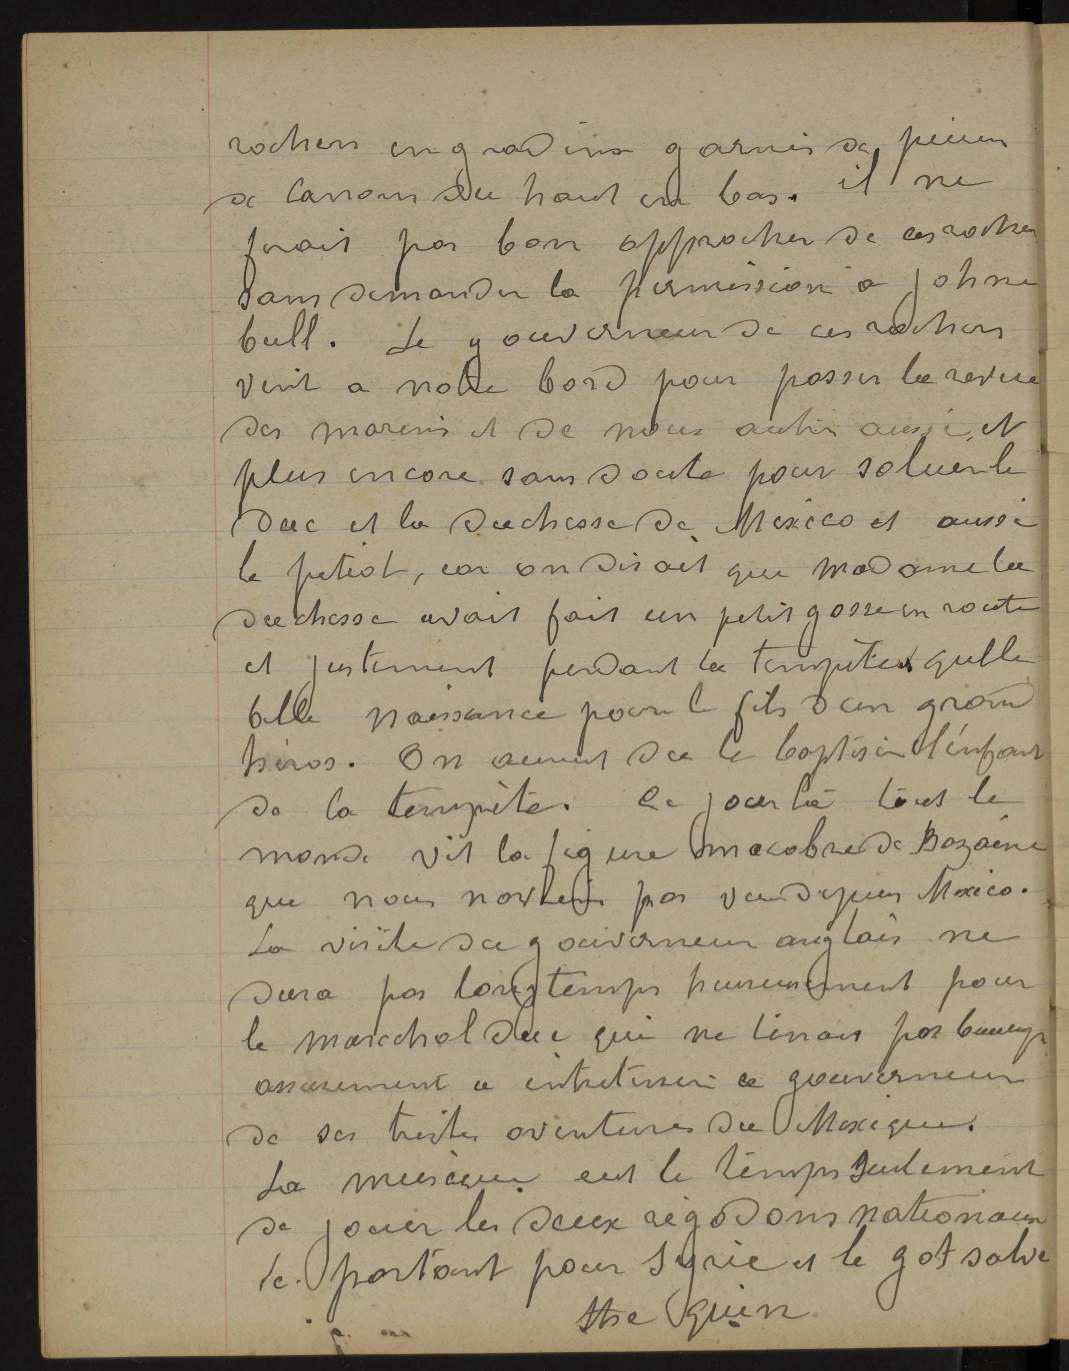 rochers en gradins garnis de pièces
de canons du haut en bas. il ne
ferait pas bon approcher de ces rochers
sans demander la permission a john
bull. Le gouverneur de ces rochers
vint a notre bord pour passer la revue
des marins et de nous autres aussi, et
plus encore sans doute pour saluer le
duc et la duchesse de Mexico et aussi
le petiot, car on disait que Madame la
duchesse avait fait un petit gosse en route
et justement pendant la tempête quelle
belle naissance pour le fils d'un grand
héros. On aurait du le baptiser l'enfant
de la tempète. Ce jour là tout le
monde vit la figure macabre de Bazaine
que nous navions pas vu depuis Mexico.
La visite du gouverneur anglais ne
dura pas longtemps heureusement pour
le marechal duc qui ne tenait pas beaucoup
assurement a entretenir ce gouverneur
de ses tristes aventures du Mexique.
La musique eut le temps seulement
de jouer les deux rigodons nationaux
le partant pour Syrie et le got salve
the quin